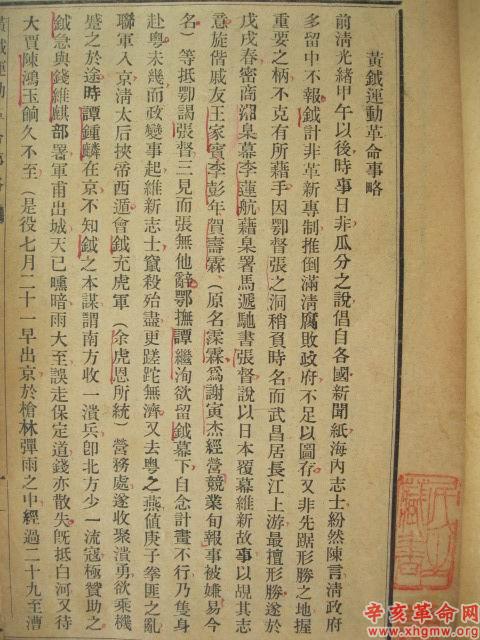 黃鉞運動革命事略
前清光緒甲午以後時事日非瓜分之說倡自各國新聞紙海內志士紛然陳言清政府
多留中不報鉞計非革新專制推倒滿清腐敗政府不足以圖存又非先踞形勝之地握
重要之柄不克有所藉手因鄂督張之洞稍負時名而武昌居長江上游最擅形勝遂於
戊戌春密商湖臬幕李蓮航藉臬署馬遞馳書張督說以日本覆幕維新故事以覘其志
意旋偕戚友王家賓李彭年賀壽霖(原名霂霖爲謝寅杰經營競業旬報事被嫌易今
名)等抵鄂謁張督三見而張無他辭鄂撫譚繼洵欲留鉞幕下自念計畫不行乃隻身
赴粵未幾而政變事起維新志士竄殺殆盡更蹉跎無濟又去粵之燕値庚子拳匪之亂
聯軍入京淸太后挾帝西遁會鉞充虎軍(余虎恩所統)營務處遂收聚潰勇欲乘機
蹙之於途時譚鍾麟在京不知鉞之本謀謂南方收一潰兵卽北方少一流寇極贊助之
鉞急與錢維麒部署軍甫出城天已曛暗雨大至誤走保定道錢亦散失旣抵白河又待
大賈陳鴻玉餉久不至(是役七月二十一早出京於槍林彈雨之中經過二十九至漕
黃鉞運動
辛亥革命网
www.xhgmw.org